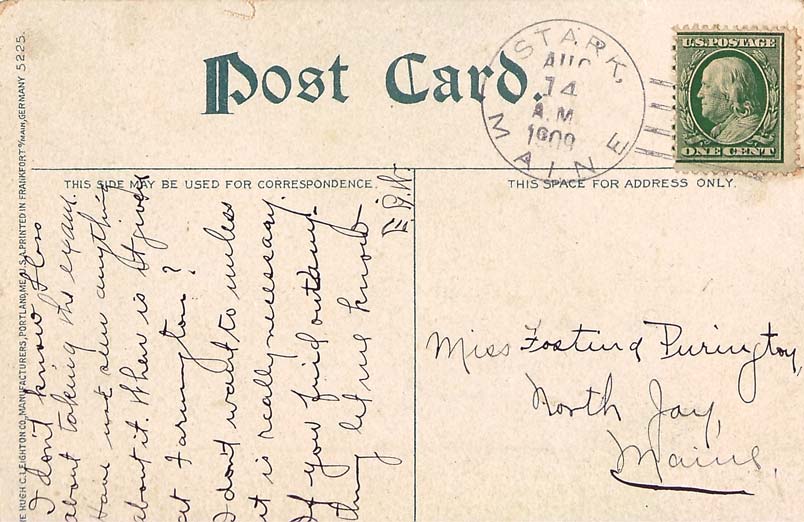 Post Card.
STARK, MAINE
AUG
14
A.M.
1909
U.S. POSTAGE
ONE CENT
THIS SIDE MAY BE USED FOR CORRESPONDENCE.
THIS SPACE FOR ADDRESS ONLY.
HUGH C. LEIGHTON CO., MANUFACTURERS, PORTLAND, ME., U.S.A. PRINTED IN FRANKFORT o/MAIN, GERMANY 5225.
I don't know Floss
about taking the exam.
Have not seen anything
about it. When is it given
at Farmington?
I don't want to unless
it is really necessary.
If you find out any-
thing let me know
E.G.W.
Miss Purington,
North Jay,
Maine.